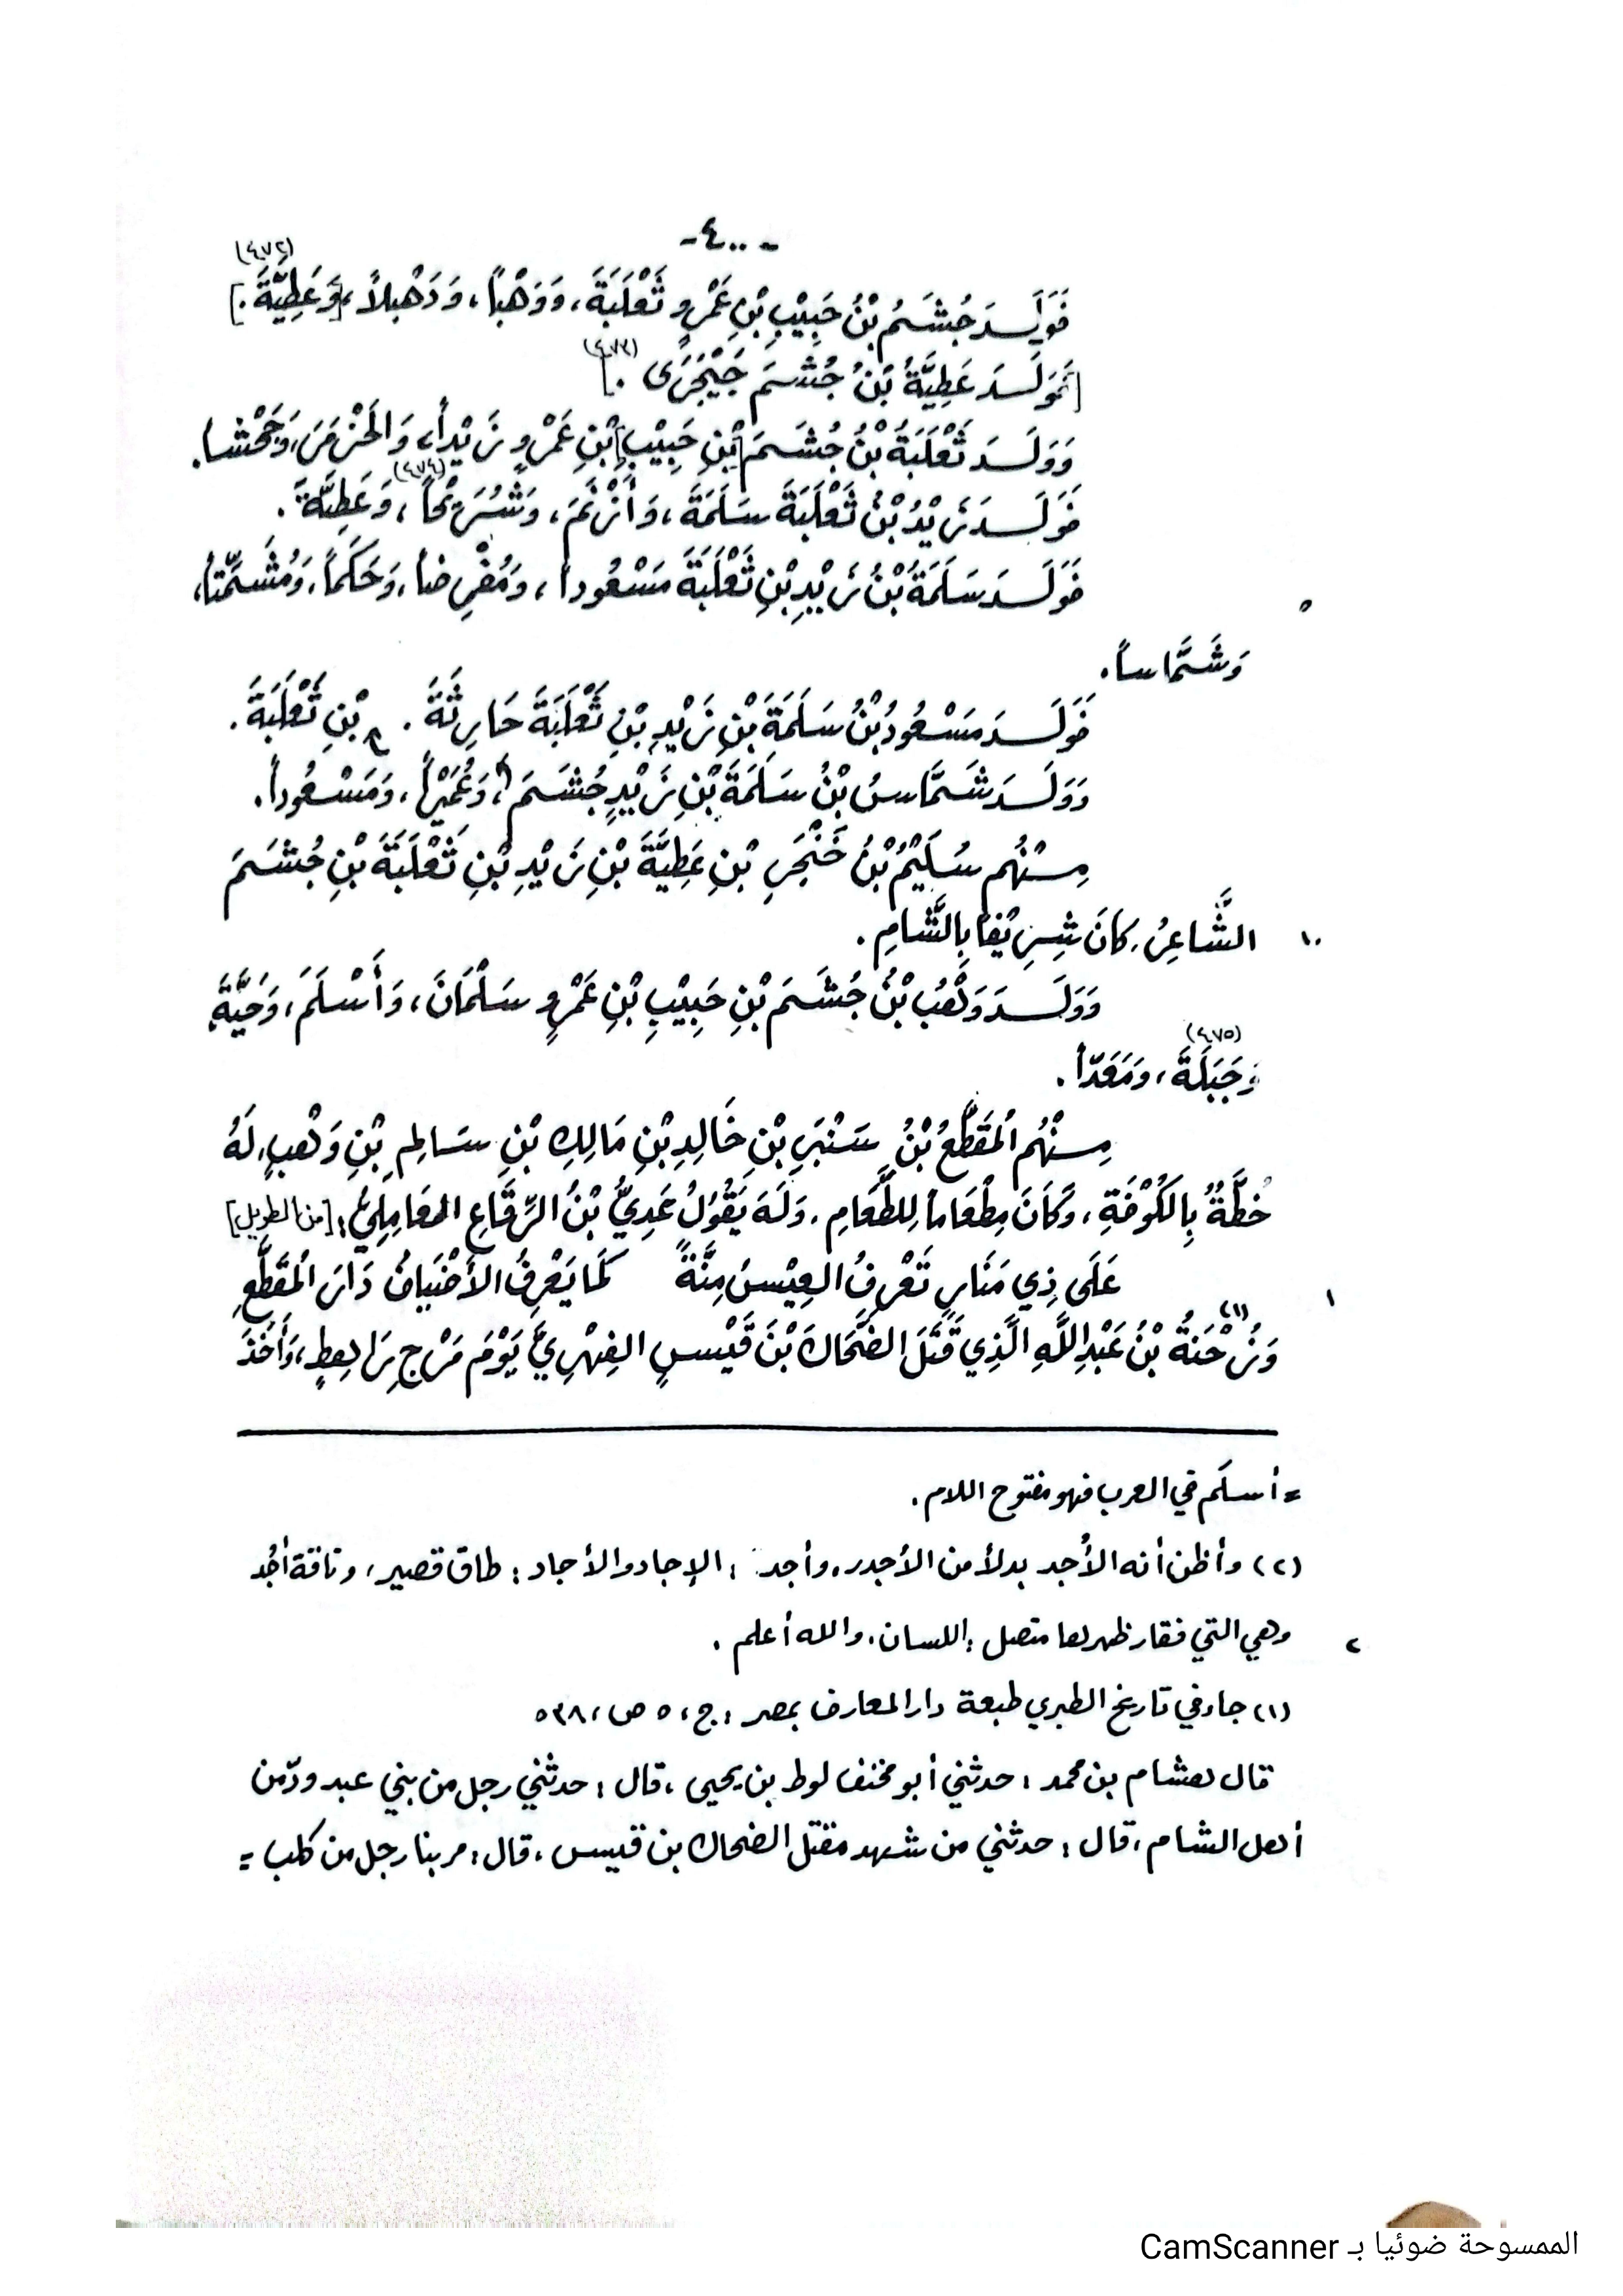 -٤٠٠-
(٤٧٢)
فَوَلَدَ جُشَمُ بْنُ حَبِيْبِ بْنِ عَمْرٍو ثَعْلَبَةَ، وَوَهْباً، وَدَهْبلاً، [وَعَطِيَّةَ.]
(٤٧٣)
[فَوَلَدَ عَطِيَّةُ بْنُ جُشَمَ حَيْجَرَى.]
وَوَلَدَ ثَعْلَبَةُ بْنُ جُشَمَ [بْنِ حَبِيْبِ] بْنِ عَمْرٍو زَيْداً، وَالخَزْمَرَ، وَجَحْشا.
(٤٧٤)
فَوَلَدَ زَيْدُ بْنُ ثَعْلَبَةَ سَلَمَةَ، وَأَزْنَمَ، وَشُرَيْحاً، وَعَطِيَّةَ.
فَوَلَدَ سَلَمَةُ بْنُ زَيْدِ بْنِ ثَعْلَبَةَ مَسْعُوداً، وَمُفْرِضاً، وَحَكَماً، وَمُشَمِّتاً،
٥
وَشَمَّاساً.
فَوَلَدَ مَسْعُودُ بْنُ سَلَمَةَ بْنِ زَيْدِ بْنِ ثَعْلَبَةَ حَارِثَةَ. بْنِ ثَعْلَبَةَ.
وَوَلَدَ شَمَّاسُ بْنُ سَلَمَةَ بْنِ زَيْدٍ جُشَمَ، وَعُمَيْراً، وَمَسْعُوداً.
مِنْهُم سُلَيْمُ بْنُ خَنْجَرِ بْنِ عَطِيَّةَ بْنِ زَيْدِ بْنِ ثَعْلَبَةَ بْنِ جُشَمَ
١٠ الشَّاعِرُ، كَانَ شَرِيْفاً بِالشَّامِ.
وَوَلَدَ وَهْبُ بْنُ جُشَمَ بْنِ حَبِيْبِ بْنِ عَمْرٍو سَلْمَانَ، وَأَسْلَمَ، وَحَيَّةَ
(٤٧٥)
وَجَبَلَةَ، وَمَعَدّاً.
مِنْهُم الْمُقَطَّعُ بْنُ سَنْبَرِ بْنِ خَالِدِ بْنِ مَالِكِ بْنِ سَالِمِ بْنِ وَهْبٍ، لَهُ
خُطَّةٌ بِالكُوْفَةِ، وَكَانَ مِطْعَاماً لِلطَّعَامِ. وَلَهُ يَقُوْلُ عَدِيُّ بْنُ الرِّقَاعِ العَامِلِيُّ: [من الطويل]
عَلَى ذِي مَنَارٍ تَعْرِفُ العِيْسُ مَتْنَهُ كَمَا يَعْرِفُ الأَضْيَافُ دَارَ الْمُقَطَّعِ
١
(١)
وَزُحْنَةُ بْنُ عَبْدِ اللَّهِ الَّذِي قَتَلَ الضَّحَّاكَ بْنَ قَيْسٍ الفِهْرِيَّ يَوْمَ مَرْجِ رَاهِطٍ، وَأَخَذَ
= أسلَم في العرب فهو مفتوح اللام.
(٢) وأظن أنه الأُجد بدلاً من الأجدر، وأجد: الإجاد والأجاد: طاق قصير، وناقة أجُد
وهي التي فقار ظهرها متصل: اللسان، والله أعلم.
٢
(١) جاء في تاريخ الطبري طبعة دار المعارف بمصر: ج، ٥ ص، ٥٣٨
قال هشام بن محمد: حدثني أبو مخنف لوط بن يحيى، قال: حدثني رجل من بني عبد ودّ من
أهل الشام، قال: حدثني من شهد مقتل الضحاك بن قيس، قال: مر بنا رجل من كلب =
الممسوحة ضوئيا بـ CamScanner